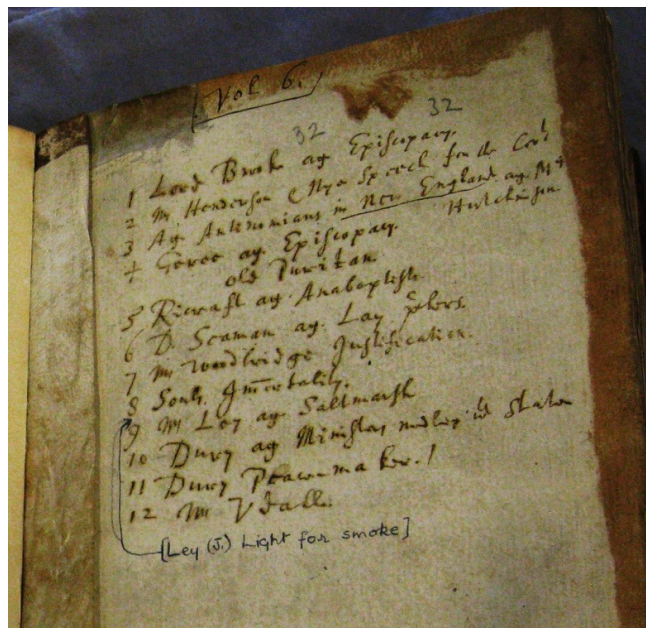 [Vol 6.]
32 32
1 Lord Brook ag Episcopacy.
2 Mr Henderson & Nye Speech for the Covt
3 Ag. Antinomians in New England ag. Mrs
Hutchinson
4 Geree ag. Episcopacy.
old Puritan
5 Ricraft ag. Anabaptists
6 D. Seaman ag. Lay
7 Mr Woodbridge Justification.
8 Souls Immortality.
9 Mr Ley ag. Saltmarsh
10 Dury ag Ministers State
11 Dury Peacemaker.
12 Mr Udall.
[Ley (J.) Light for smoke]